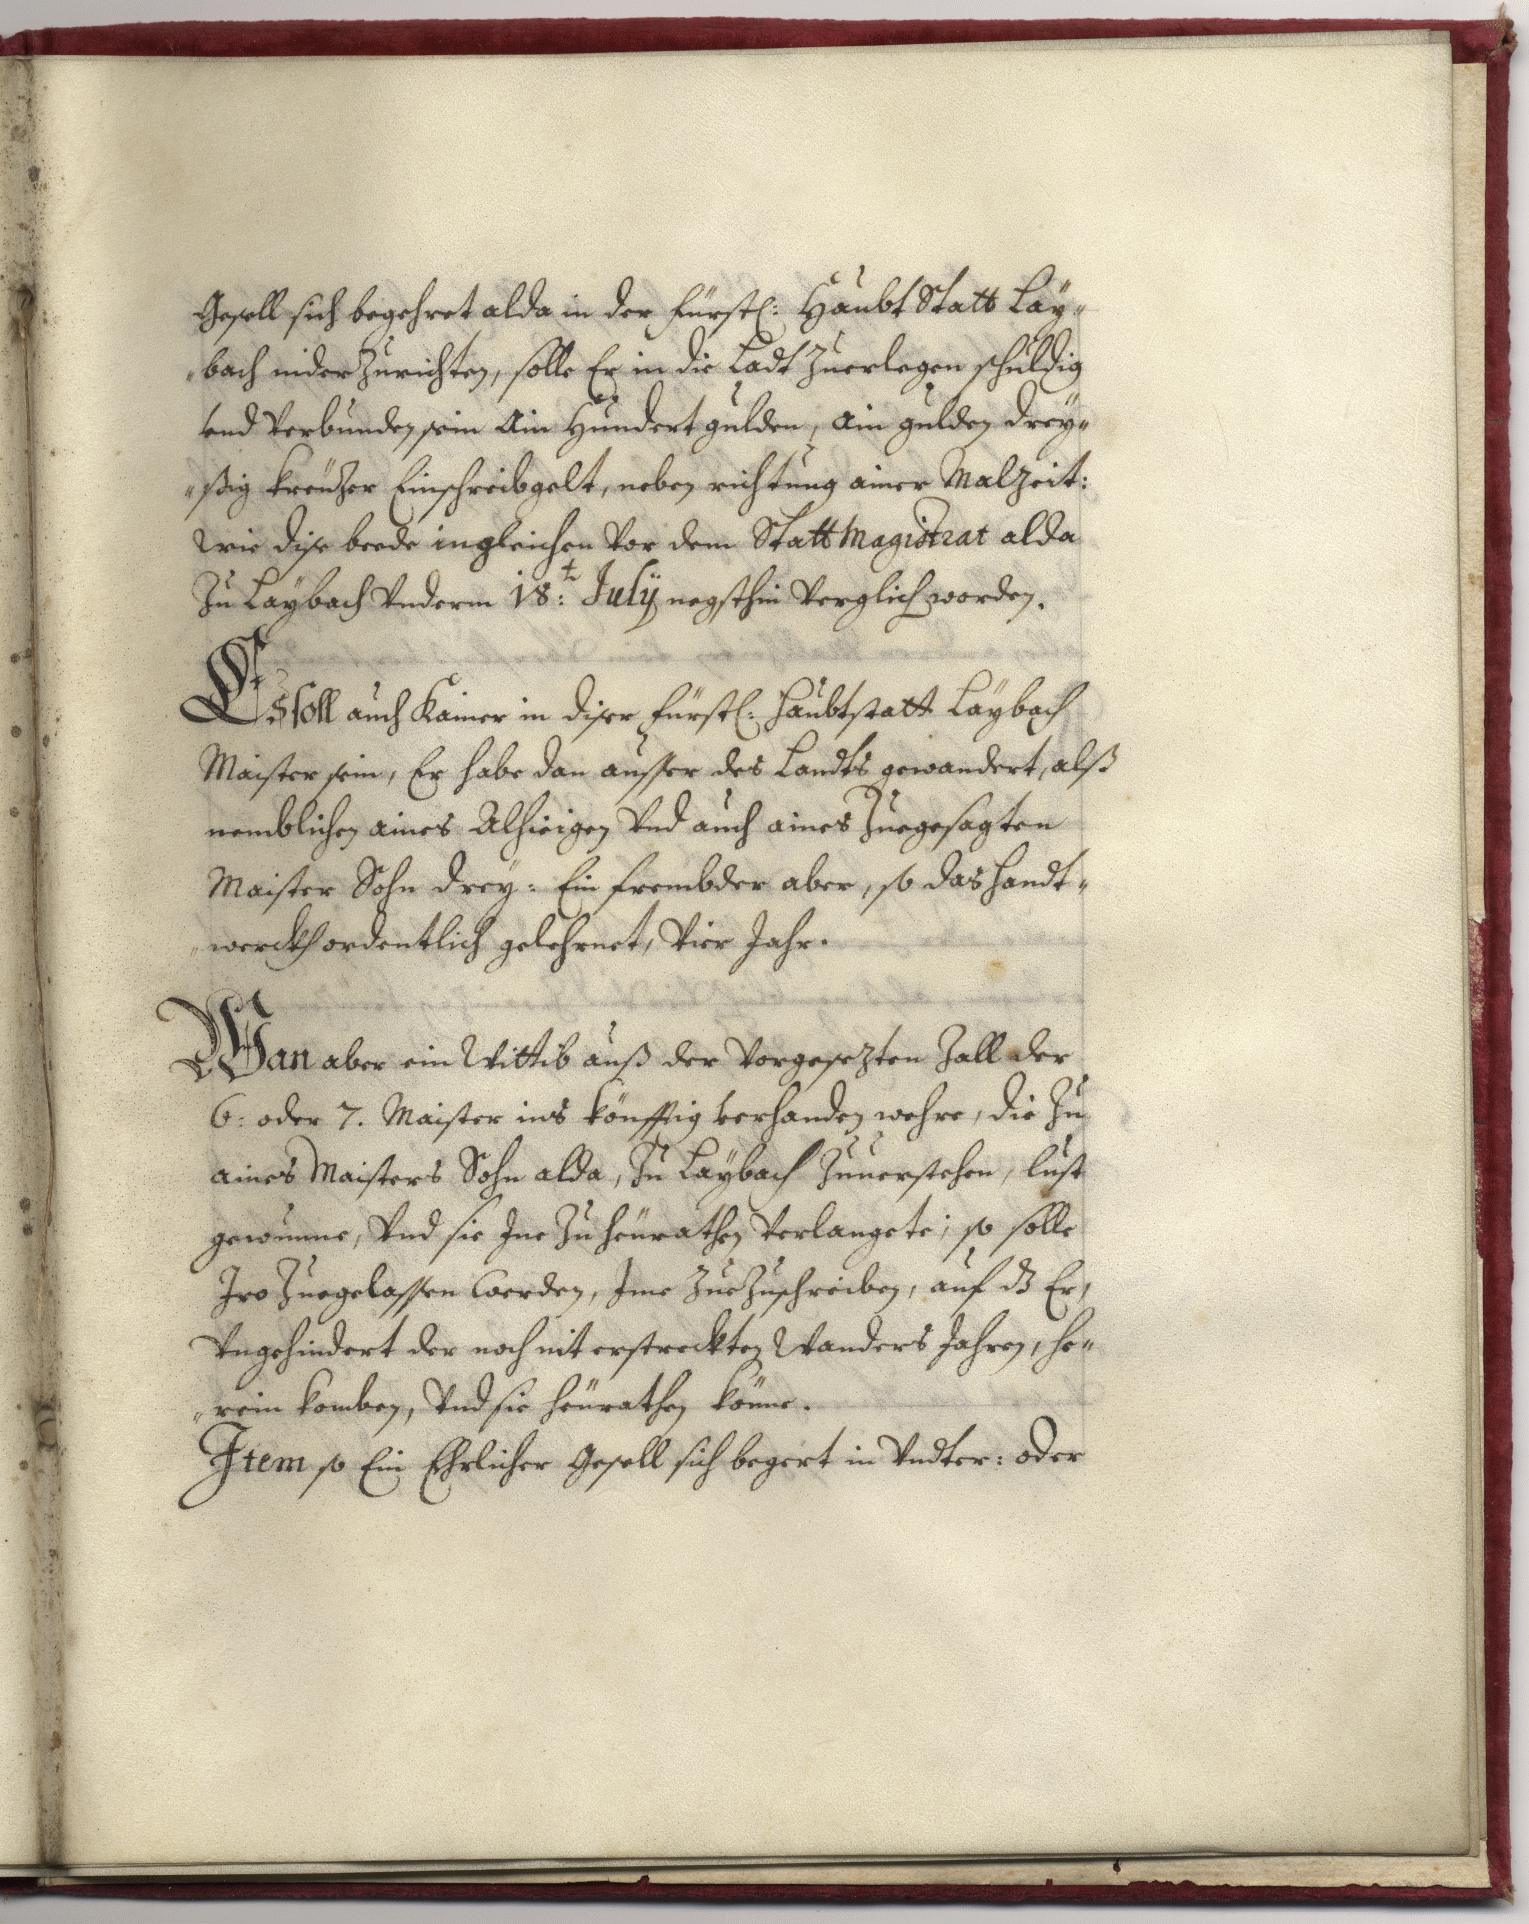 Gesell sich begehret alda in der Fürstl: Haubt Statt Laÿ„
„bach niderZurichten, solle Er in die Ladt Zuerlegen schuldig
vnd Verbunden sein Ain Hundert gulden, ain gulden dreÿ„
„ßig kreüzer Einschreibgelt, neben richtung ainer Malzeit:
wie dise beede ingleichen Vor dem Statt Magistrat alda
Zu Laÿbach Vnderm 18:t Julÿ negsthin Verglich worden.
Es soll auch Kainer in diser Fürstl: Haubtstatt Laÿbach
Maister sein, Er habe dan ausser des Landts gewandert, alß
nemblichen aines Alhieigen Vnd auch aines Zuegesagten
Maister Sohn dreÿ: Ein frembder aber, so das Handt„
„werckh ordentlich gelehrnet, Vier Jahr.
Wan aber ein Wittib auß der Vorgesezten Zall der
6: oder 7. Maister ins könfftig verhanden wehre, die Zu
aines Maisters Sohn alda, Zu Laÿbach Zuuerstehen, lust
gewunne, Vnd sie Ine Zu heürathen Verlangete; so solle
Iro Zuegelassen werden, Ime ZueZuschreiben, auf dz Er,
Vngehindert der noch nit erstreckten Wanders Jahren, he„
„rein komben, Vnd sie heürathen könne.
Item so Ein Ehrlicher Gesell sich begert in Vndter: oder